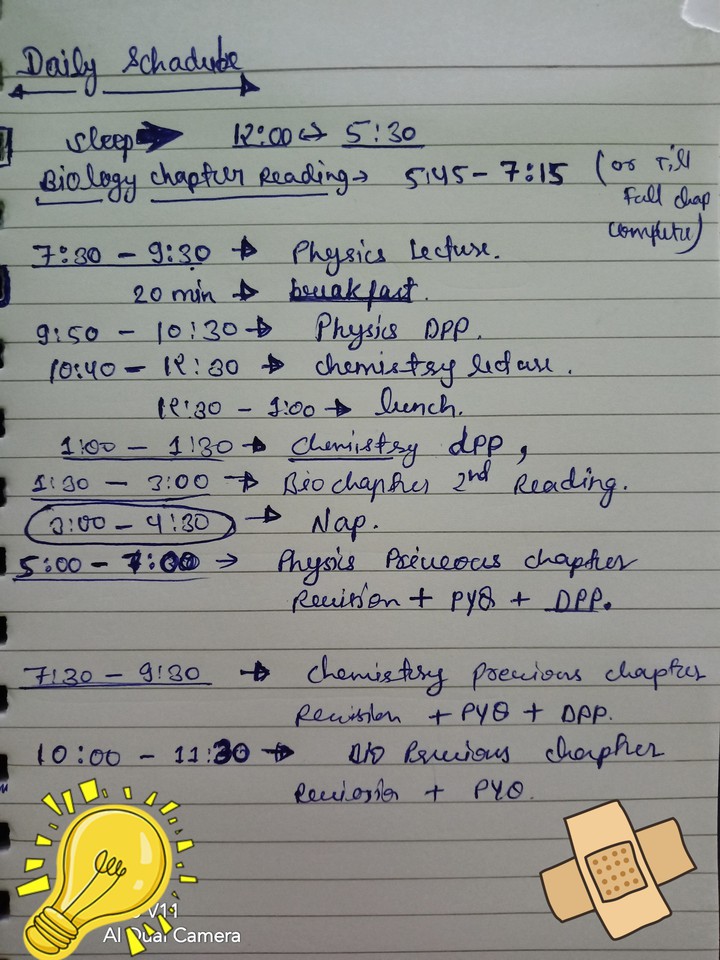 Daily Schadule
Sleep → 12:00 ↔ 5:30
Biology chapter Reading → 5:45 - 7:15 (or till
full chap
complete)
7:30 - 9:30 → Physics lecture.
20 min → breakfast.
9:50 - 10:30 → Physics DPP.
10:40 - 12:30 → chemistry lecture.
12:30 - 1:00 → lunch.
1:00 - 1:30 → Chemistry dPP,
1:30 - 3:00 → Bio chapter 2nd Reading.
3:00 - 4:30 → Nap.
5:00 - 7:00 → Physis Previeous chapter
Revision + PYQ + DPP.
7:30 - 9:30 → chemistry previous chapter
Revision + PYQ + DPP.
10:00 - 11:30 → Bio Previous chapter
Revision + PYQ.
V11
AI Dual Camera